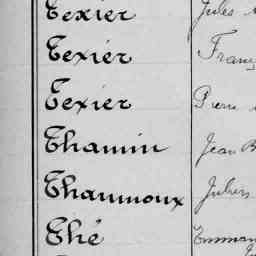 Texier Jules
Texier
Texier Pierre
Thamin Jean B
Thaumoux Julien
Thé Emman